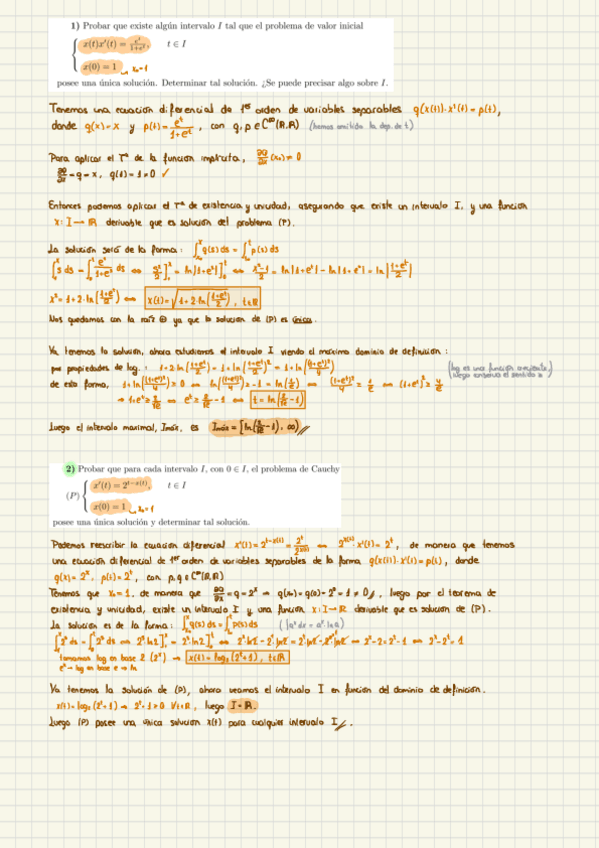 1) Probar que existe algún intervalo I tal que el problema de valor inicial
x(t)x'(t) = e^t/(1+e^t), t ∈ I
x(0) = 1 → x₀=1
posee una única solución. Determinar tal solución. ¿Se puede precisar algo sobre I.
Tenemos una ecuación diferencial de 1er orden de variables separables g(x(t))·x'(t) = p(t),
donde g(x) = x y p(t) = e^t/(1+e^t), con g, p ∈ C^∞(R,R) (hemos omitido la dep. de t)
Para aplicar el Tª de la función implícita, ∂G/∂x (x₀) ≠ 0
= g = x, g(1) = 1 ≠ 0 ✓
Entonces podemos aplicar el Tª de existencia y unicidad, asegurando que existe un intervalo I, y una función
x: I → R derivable que es solución del problema (P).
La solución será de la forma: ∫ g(s) ds = ∫ p(s) ds
∫ s ds = ∫ e^s/(1+e^s) ds ⇔ s²/2 ] = ln|1+e^s| ] ⇔ (x²-1)/2 = ln|1+e^t| - ln|1+e⁰| = ln|(1+e^t)/2|
x² = 1+2·ln((1+e^t)/2) ⇔ x(t) = √(1+2·ln((1+e^t)/2)), t∈R
Nos quedamos con la raíz ⊕ ya que la solución de (P) es única.
Ya tenemos la solución, ahora estudiamos el intervalo I viendo el máximo dominio de definición:
por propiedades de log.: 1+2·ln((1+e^t)/2) = 1+ln((1+e^t)/2)² = 1+ln((1+e^t)²/4)
(log es una función creciente, luego conserva el sentido)
de esta forma, 1+ln((1+e^t)²/4) ≥ 0 ⇔ ln((1+e^t)²/4) ≥ -1 = ln(1/e) ⇔ (1+e^t)²/4 ≥ 1/e ⇔ (1+e^t)² ≥ 4/e
→ 1+e^t ≥ 2/√e ⇔ e^t ≥ 2/√e - 1 ⇔ t = ln(2/√e - 1)
Luego el intervalo maximal, Imáx, es Imáx = [ln(2/√e - 1), ∞)
2) Probar que para cada intervalo I, con 0 ∈ I, el problema de Cauchy
(P) x'(t) = 2^(t-x(t)), t ∈ I
x(0) = 1 → x₀=1
posee una única solución y determinar tal solución.
Podemos reescribir la ecuación diferencial x'(t) = 2^(t-x(t)) = 2^t/2^(x(t)) ⇔ 2^(x(t))·x'(t) = 2^t, de manera que tenemos
una ecuación diferencial de 1er orden de variables separables de la forma g(x(t))·x'(t) = p(t), donde
g(x) = 2^x, p(t) = 2^t, con p, g ∈ C^∞(R,R)
Tenemos que x₀ = 1, de manera que ∂G/∂x = g = 2^x → g(x₀) = ≠ 0, luego por el teorema de
existencia y unicidad, existe un intervalo I y una función x: I → R derivable que es solución de (P).
La solución es de la forma: ∫ g(s) ds = ∫ p(s) ds (∫a^x dx = a^x·ln a)
∫ 2^s ds = ∫ 2^s ds ⇔ 2^s·ln2 ] = 2^s·ln2 ] ⇔ 2^x·ln2 - 2¹·ln2 = 2^t·ln2 - 2⁰·ln2 ⇔ 2^x - 2 = 2^t - 1 ⇔ 2^x - 2^t = 1
tomamos log en base 2 (2^x) → x(t) = log₂(2^t+1), t∈R
e^x → log en base e → ln
Ya tenemos la solución de (P), ahora veamos el intervalo I en función del dominio de definición.
x(t) = log₂(2^t+1) → 2^t+1 > 0 ∀t∈R, luego I = R.
Luego (P) posee una única solución x(t) para cualquier intervalo I.